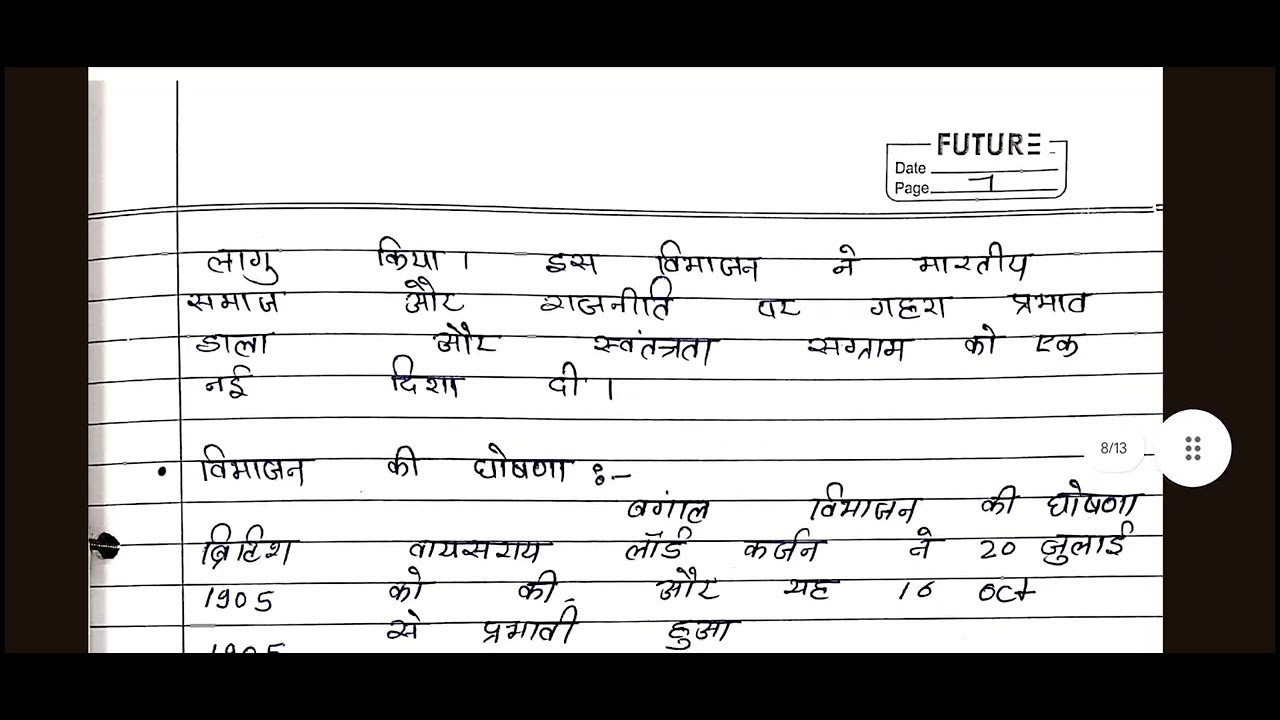 FUTURE
Date
Page 7
लागु किया। इस विभाजन ने भारतीय
समाज और राजनीति पर गहरा प्रभाव
डाला और स्वतंत्रता सग्राम को एक
नई दिशा दी।
8/13
• विभाजन की घोषणा :-
बगांल विभाजन की घोषणा
ब्रिटिश वायसराय लॉर्ड कर्जन ने 20 जुलाई
1905 को की. और यह 16 oct
से प्रभावी हुआ
1905